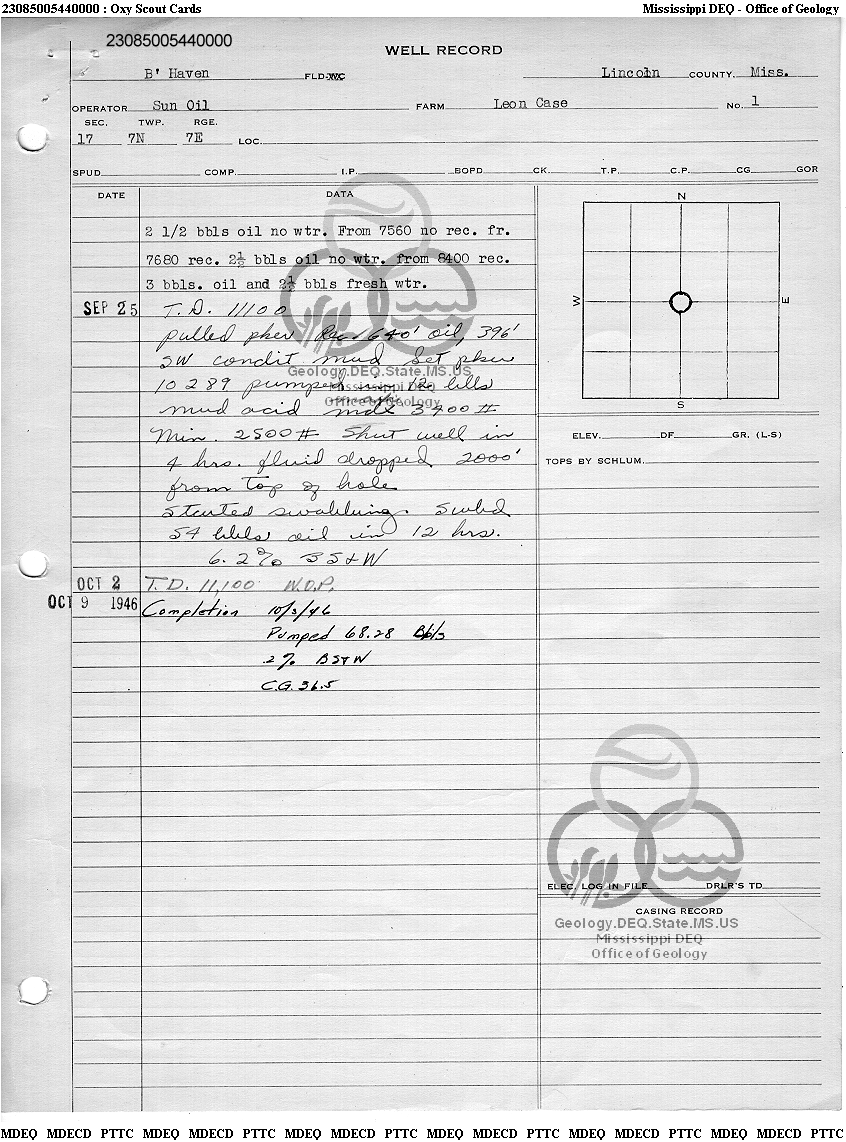 23085005440000 : Oxy Scout Cards Mississippi DEQ - Office of Geology
23085005440000
WELL RECORD
B' Haven FLD-WC Lincoln COUNTY, Miss.
OPERATOR Sun Oil FARM Leon Case No. 1
SEC. TWP. RGE.
17 7N 7E LOC.
SPUD COMP. I.P. BOPD CK. T.P. C.P. CG GOR
DATE DATA
2 1/2 bbls oil no wtr. From 7560 no rec. fr.
7680 rec. 2½ bbls oil no wtr. from 8400 rec.
3 bbls. oil and 2½ bbls fresh wtr.
SEP 25 T.D. 11100
pulled pker Rec. 640' oil, 396'
SW condit mud Set pker
10289 pumped in 12 bbls
mud acid max 3400#
Min. 2500# Shut well in
4 hrs. fluid dropped 2000'
from top of hole
Started swabbing. Swbd
54 bbls oil in 12 hrs.
6.2% BS&W
OCT 2 T.D. 11,100 W.O.P.
OCT 9 1946 Completion 10/3/46
Pumped 68.28 Bbls
.2% BS&W
C.G. 36.5
N
W
E
S
ELEV. DF GR. (L-S)
TOPS BY SCHLUM.
ELEC. LOG IN FILE DRLR'S TD
CASING RECORD
Geology.DEQ.State.MS.US
Mississippi DEQ
Office of Geology
Geology.DEQ.State.MS.US
Mississippi DEQ
Office of Geology
MDEQ MDECD PTTC MDEQ MDECD PTTC MDEQ MDECD PTTC MDEQ MDECD PTTC MDEQ MDECD PTTC MDEQ MDECD PTTC